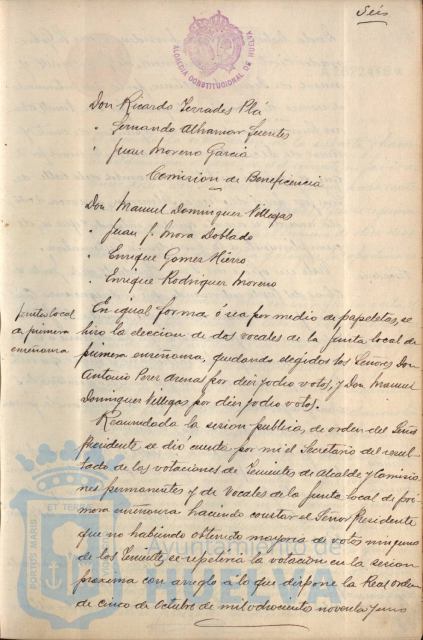 Seis
ALCALDIA CONSTITUCIONAL DE HUELVA
Don Ricardo Terrades Plá
" Fernando Alhamar Fuentes
" Juan Moreno Garcia
Comision de Beneficencia
Don Manuel Dominguez Villegas
" Juan J. Mora Doblado
" Enrique Gomez Hierro
" Enrique Rodriguez Moreno
Junta local
de primera
enseñanza
En igual forma ó sea por medio de papeletas, se
hizo la eleccion de dos vocales de la Junta local de
primera enseñanza, quedando elegidos los Señores Don
Antonio Perez por diez y ocho votos, y Don Manuel
Dominguez Villegas por diez y ocho votos.
Reanudada la sesion publica, de orden del Señor
Presidente se dió cuenta por mi el Secretario del resul-
tado de las votaciones de Tenientes de Alcalde y Comisio-
nes permanentes y de Vocales de la Junta local de pri-
mera enseñanza haciendo constar el Señor Presidente
que no habiendo obtenido mayoria de votos ninguno
de los Tenientes, se repetiria la votacion en la sesion
proxima con arreglo a lo que dispone la Real orden
de cinco de Octubre de mil ochocientos noventa y uno
PORTUS MARIS ET TERRAE
Ayuntamiento de
HUELVA